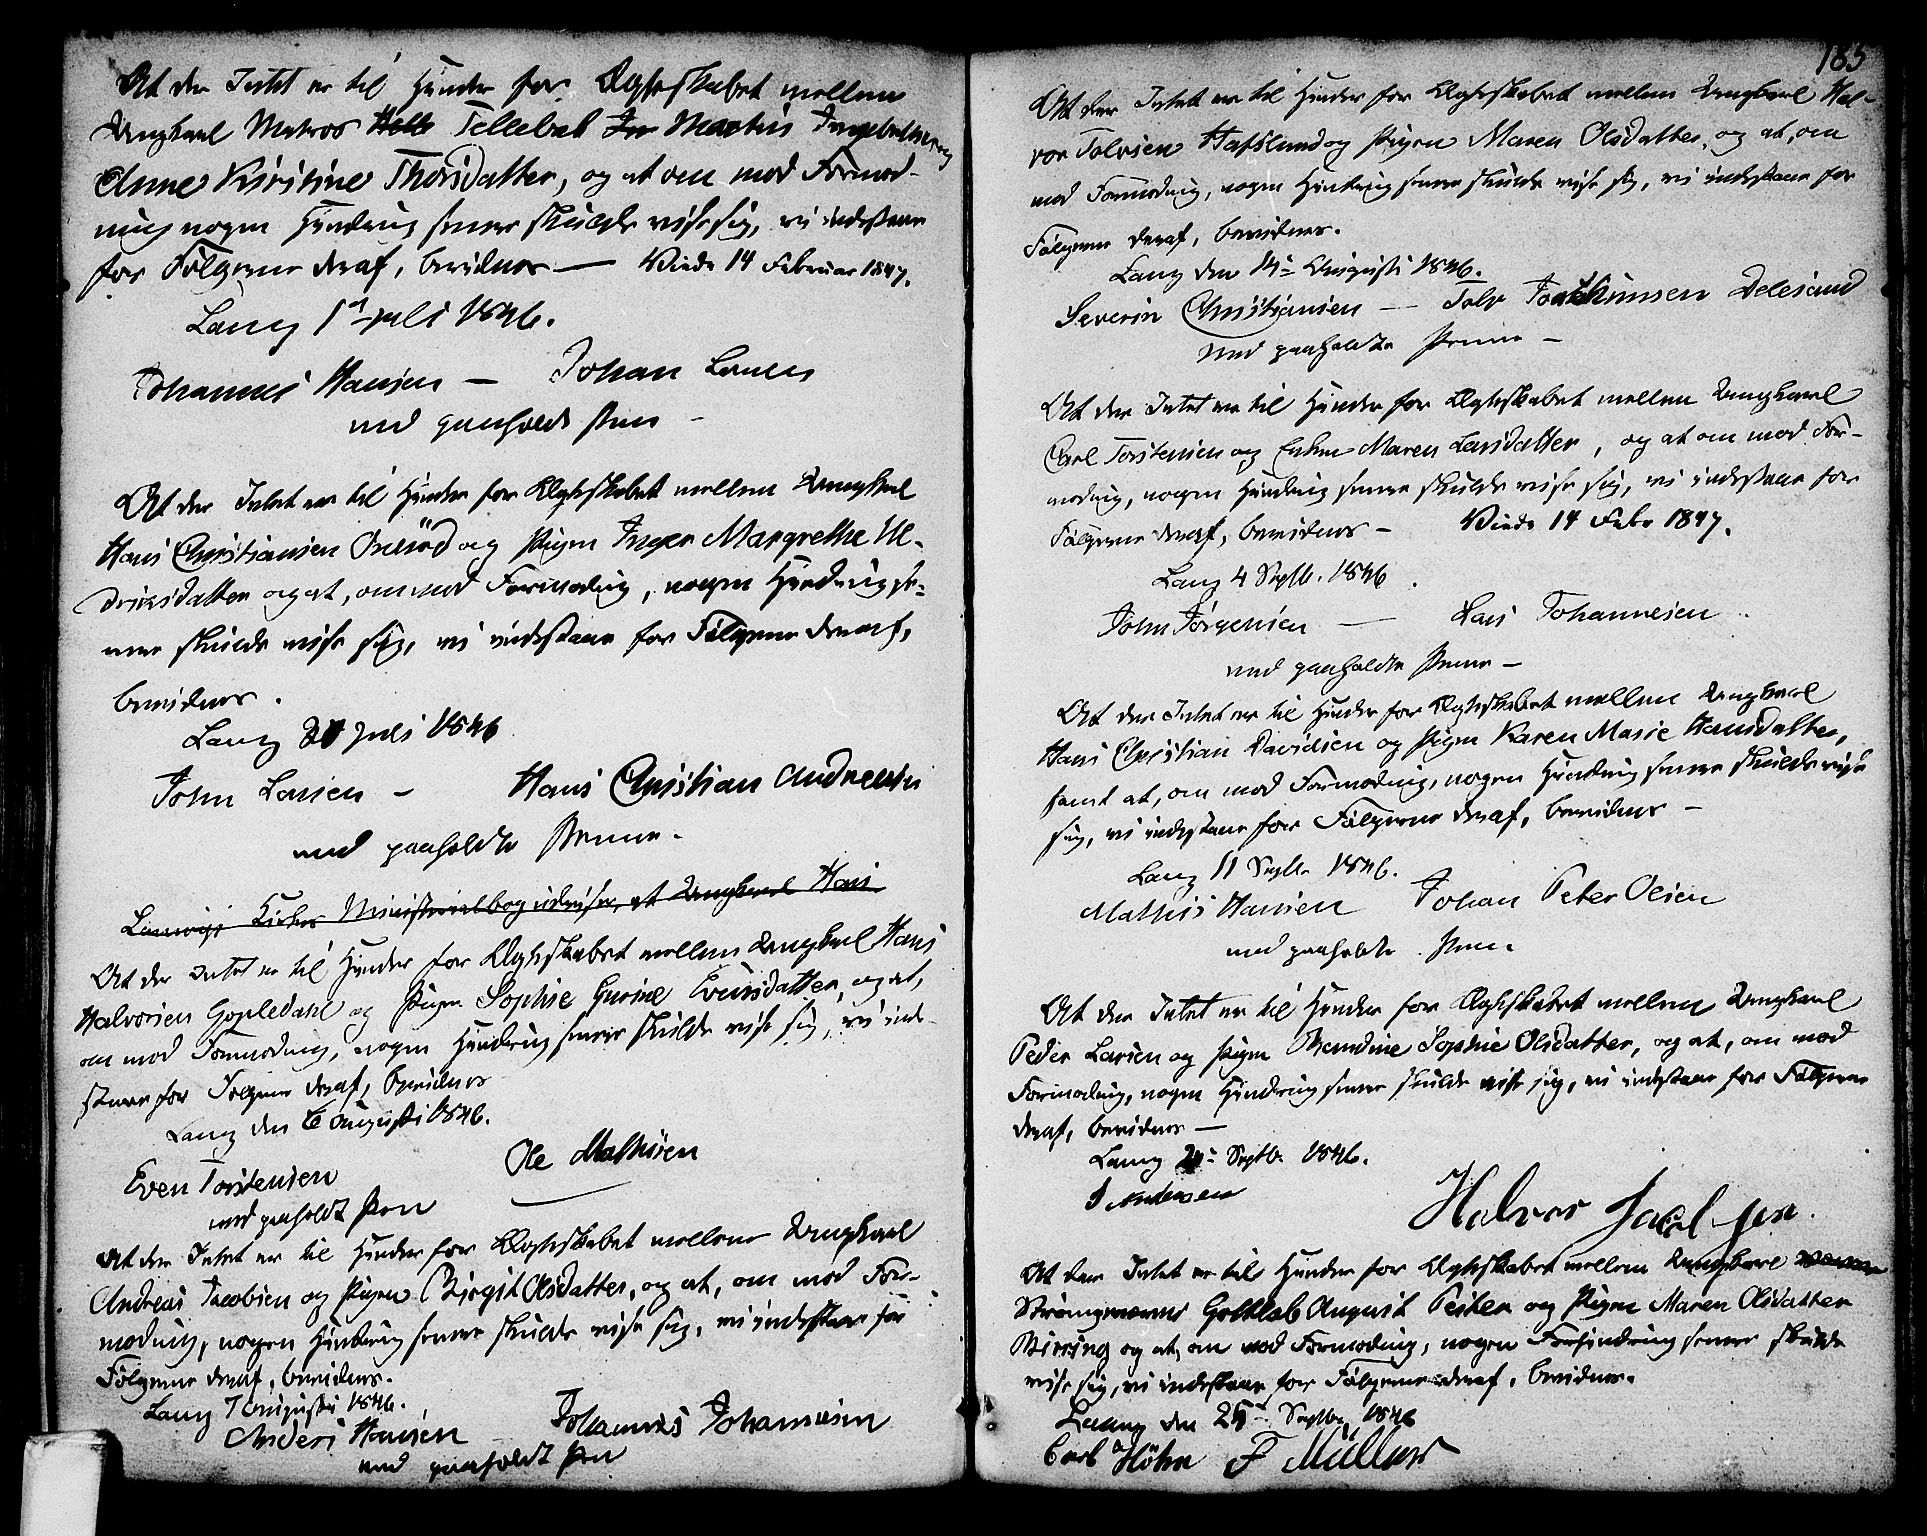 At der Intet er til Hinder for Ægteskabet mellem
Ungkarl Matros Tellebak Martin og
Anne Kirstine Thorsdatter, og at om mod Formod-
ning nogen Hindring senere skulde vise sig, vi indestaae
for Følgerne deraf, bevidner — Viede 14 Februar 1847.
Laug 1 Juli 1846.
Johannes Hansen — Johan Larsen
med paaholdt Pen —
At der Intet er til Hinder for Ægteskabet mellem Ungkarl
Hans Christiansen Önerød og Pigen Inger Margrethe Ul-
dricsdatter og at, om mod Formodning, nogen Hindring se-
nere skulde vise sig, vi indestaae for Følgerne deraf,
bevidner.
Laug Juli 1846
John Larsen — Hans Christian Andresen
med paaholdte Penne.
Laurvigs Kirkes Ministerialbog udviser, at Ungkarl Hans
At der Intet er til Hinder for Ægteskabet mellem Ungkarl Hans
Halvorsen Gopledahl og Pigen Sophie Gurine Evensdatter, og at,
om mod Formodning, nogen Hindring senere skulde vise sig, vi inde-
staae for Følgerne deraf, bevidner
Laug den 6 Augusti 1846.
Even Torstensen Ole Mathisen
med paaholdt Pen
At der Intet er til Hinder for Ægteskabet mellem Ungkarl
Andreas Jacobsen og Pigen Birgit Olsdatter, og at, om mod For-
modning, nogen Hindring senere skulde vise sig, vi indestaae for
Følgerne deraf, bevidner.
Laug 7 Augusti 1846.
Anders Hansen Johannes Johannesen
med paaholdt Pen
183
At der Intet er til Hinder for Ægteskabet mellem Ungkarl Hal-
vor Tolvsen Hafslund og Pigen Maren Olsdatter, og at, om
mod Formodning, nogen Hindring senere skulde vise sig, vi indestaae for
Følgerne deraf, bevidner.
Laug den 14 Augusti 1846.
Severin Christiansen — Tolv Joachimsen
med paaholdte Penne —
At der Intet er til Hinder for Ægteskabet mellem Ungkarl
Carl Torstensen og Enken Maren Larsdatter, og at om mod For-
modning, nogen Hindring senere skulde vise sig, vi indestaae for
Følgerne deraf, bevidner — Viede 14 Febr 1847.
Laug 4 Septb. 1846.
John Jörgensen — Lars Johannesen
med paaholdte Penne —
At der Intet er til Hinder for Ægteskabet mellem Ungkarl
Hans Christian Davidsen og Pigen Karen Marie Hansdatter,
samt at, om mod Formodning, nogen Hindring senere skulde vise
sig, vi indestaae for Følgerne deraf, bevidner —
Laug 11 Septb. 1846.
Mathis Hansen Johan Peter Olsen
med paaholdte Penne
At der Intet er til Hinder for Ægteskabet mellem Ungkarl
Peder Larsen og Pigen Berndine Sophie Olsdatter, og at, om mod
Formodning, nogen Hindring senere skulde vise sig, vi indestaae for Følgerne
deraf, bevidner —
Laug Septb. 1846.
Andersen Halvor
At der Intet er til Hinder for Ægteskabet mellem Ungkarl
Gottlob August Peiker og Pigen Maren Olsdatter
og at, om mod Formodning, nogen Forhindring senere skulde
vise sig, vi indestaae for Følgerne deraf, bevidner.
Laug den 25 Septbr 1846
Carl Höhn F Müller